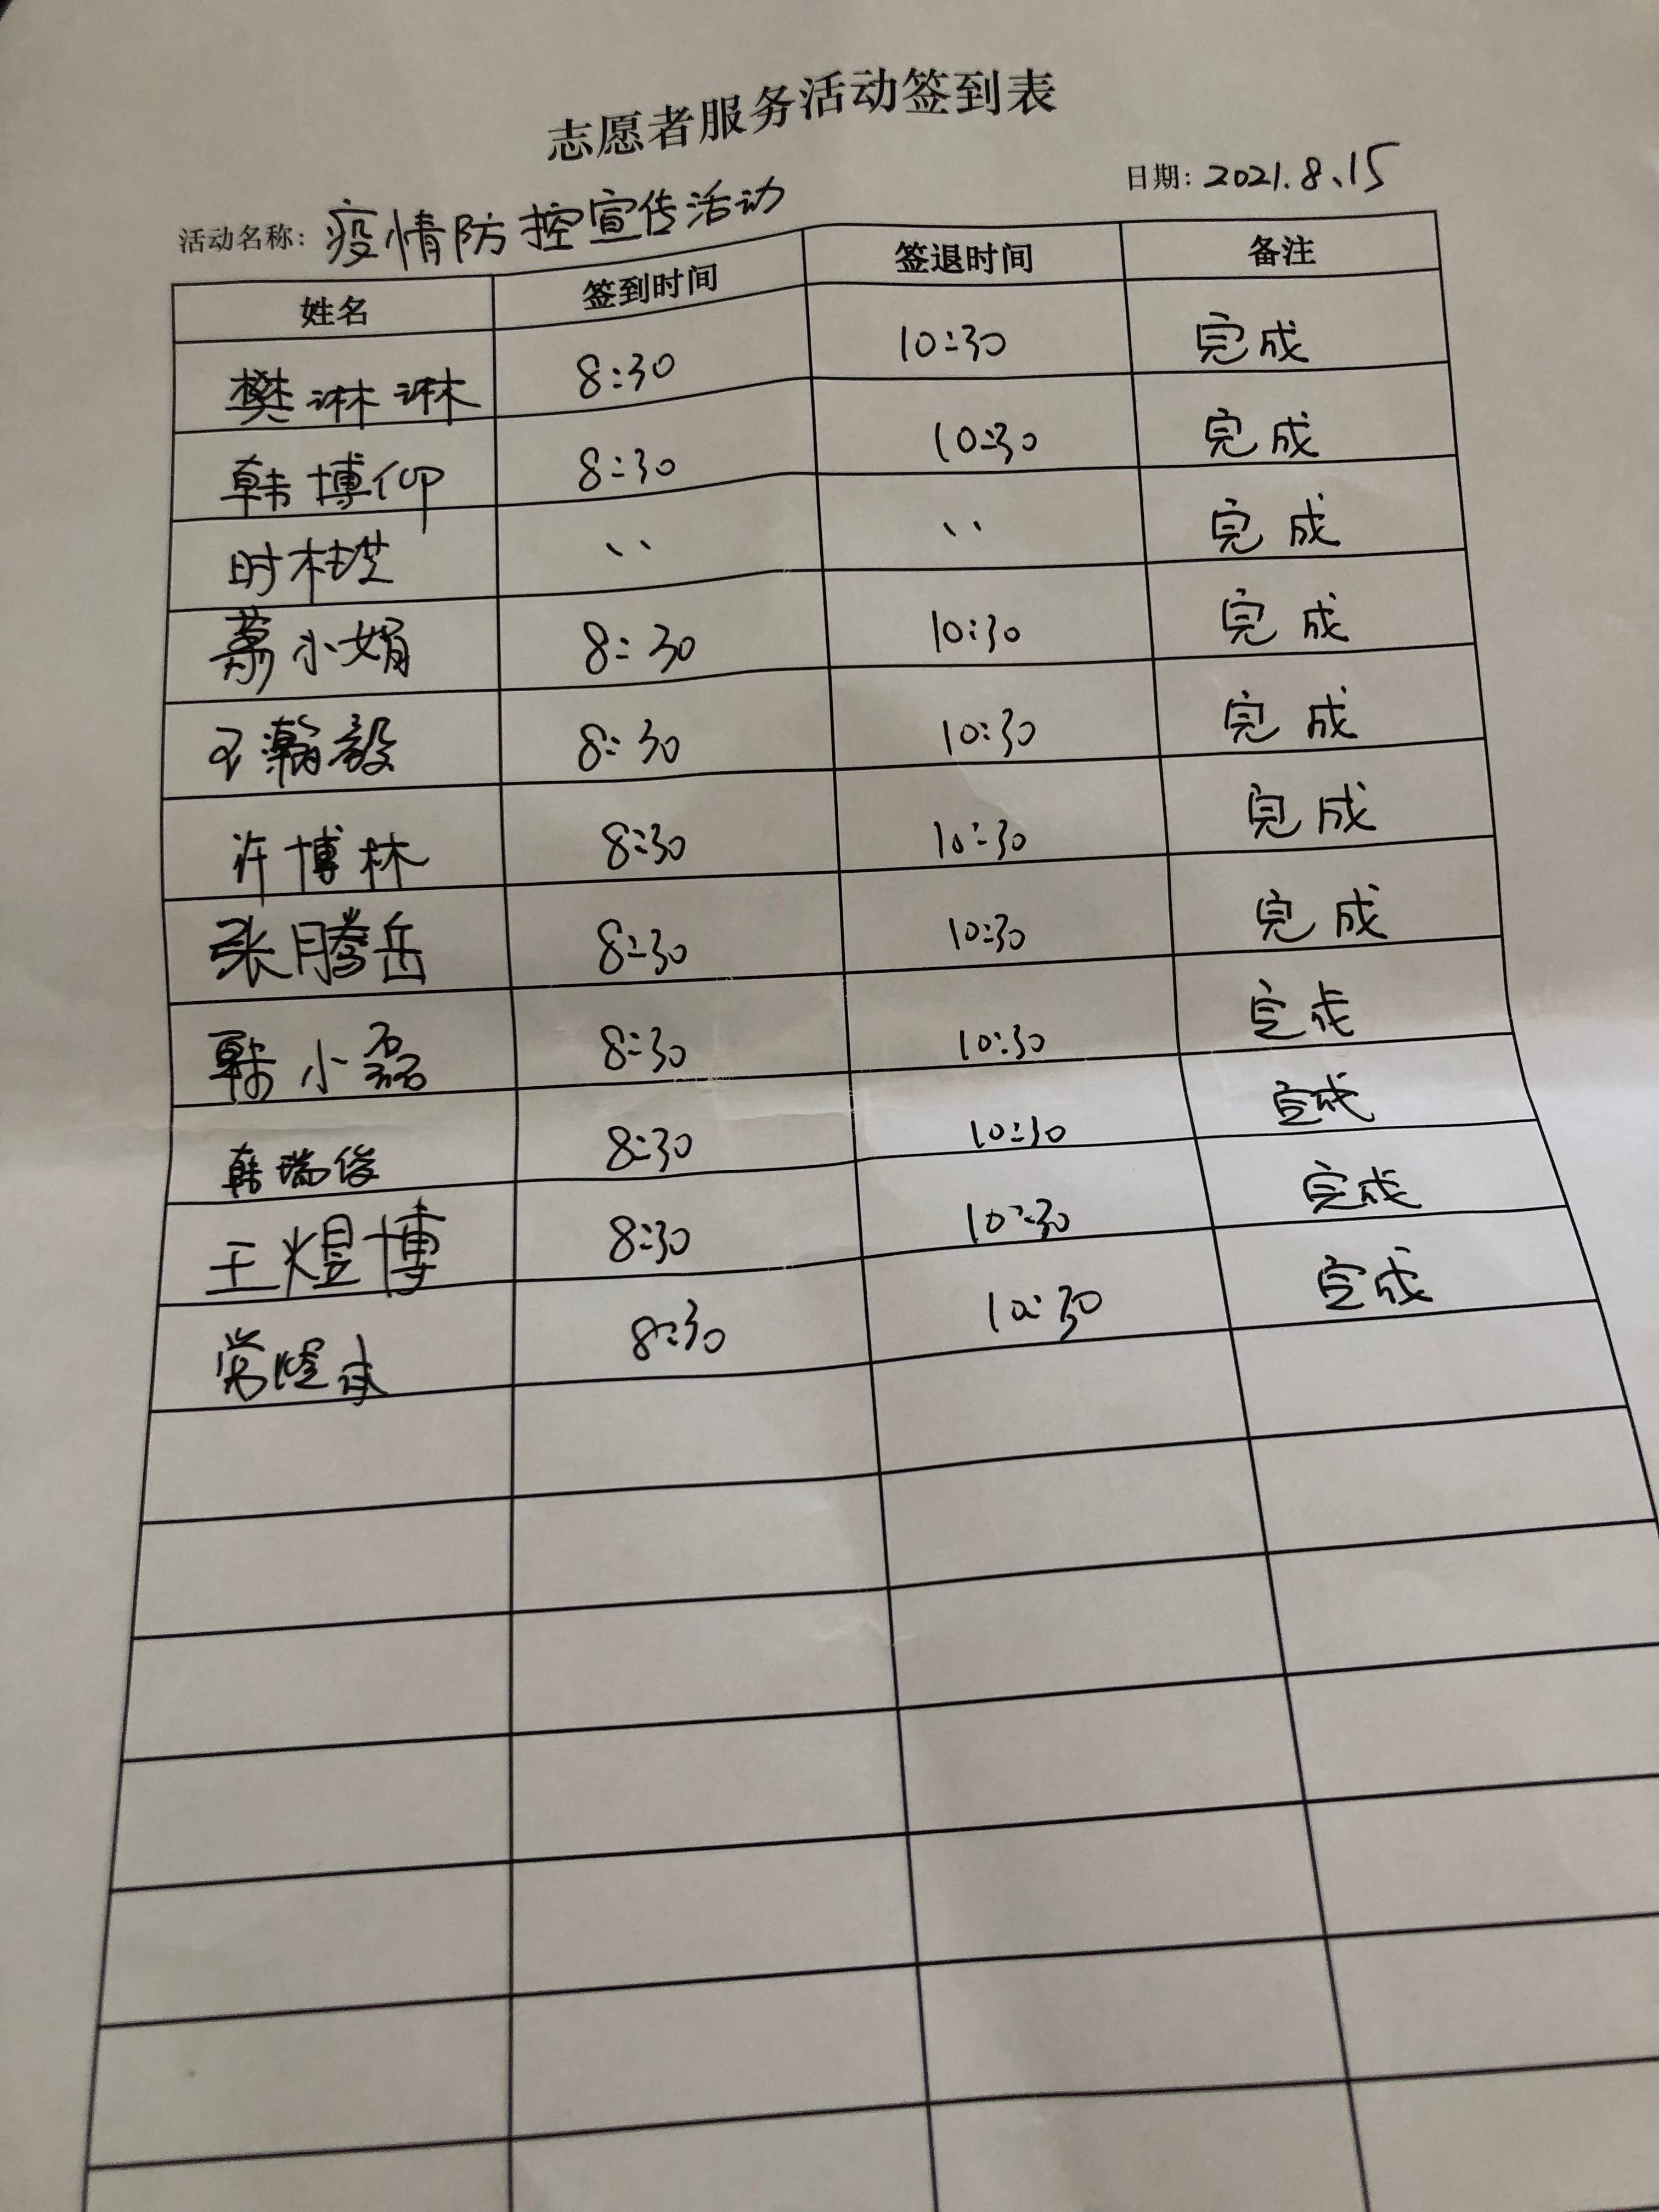 志愿者服务活动签到表
活动名称: 疫情防控宣传活动 日期: 2021.8.15
姓名 签到时间 签退时间 备注
樊淋淋 8:30 10:30 完成
韩博仰 8:30 10:30 完成
时 、、 、、 完成
小娟 8:30 10:30 完成
王瀚毅 8:30 10:30 完成
许博林 8:30 10:30 完成
张腾岳 8:30 10:30 完成
韩小磊 8:30 10:30 完成
韩瑞俊 8:30 10:30 完成
王煜博 8:30 10:30 完成
常 8:30 10:30 完成